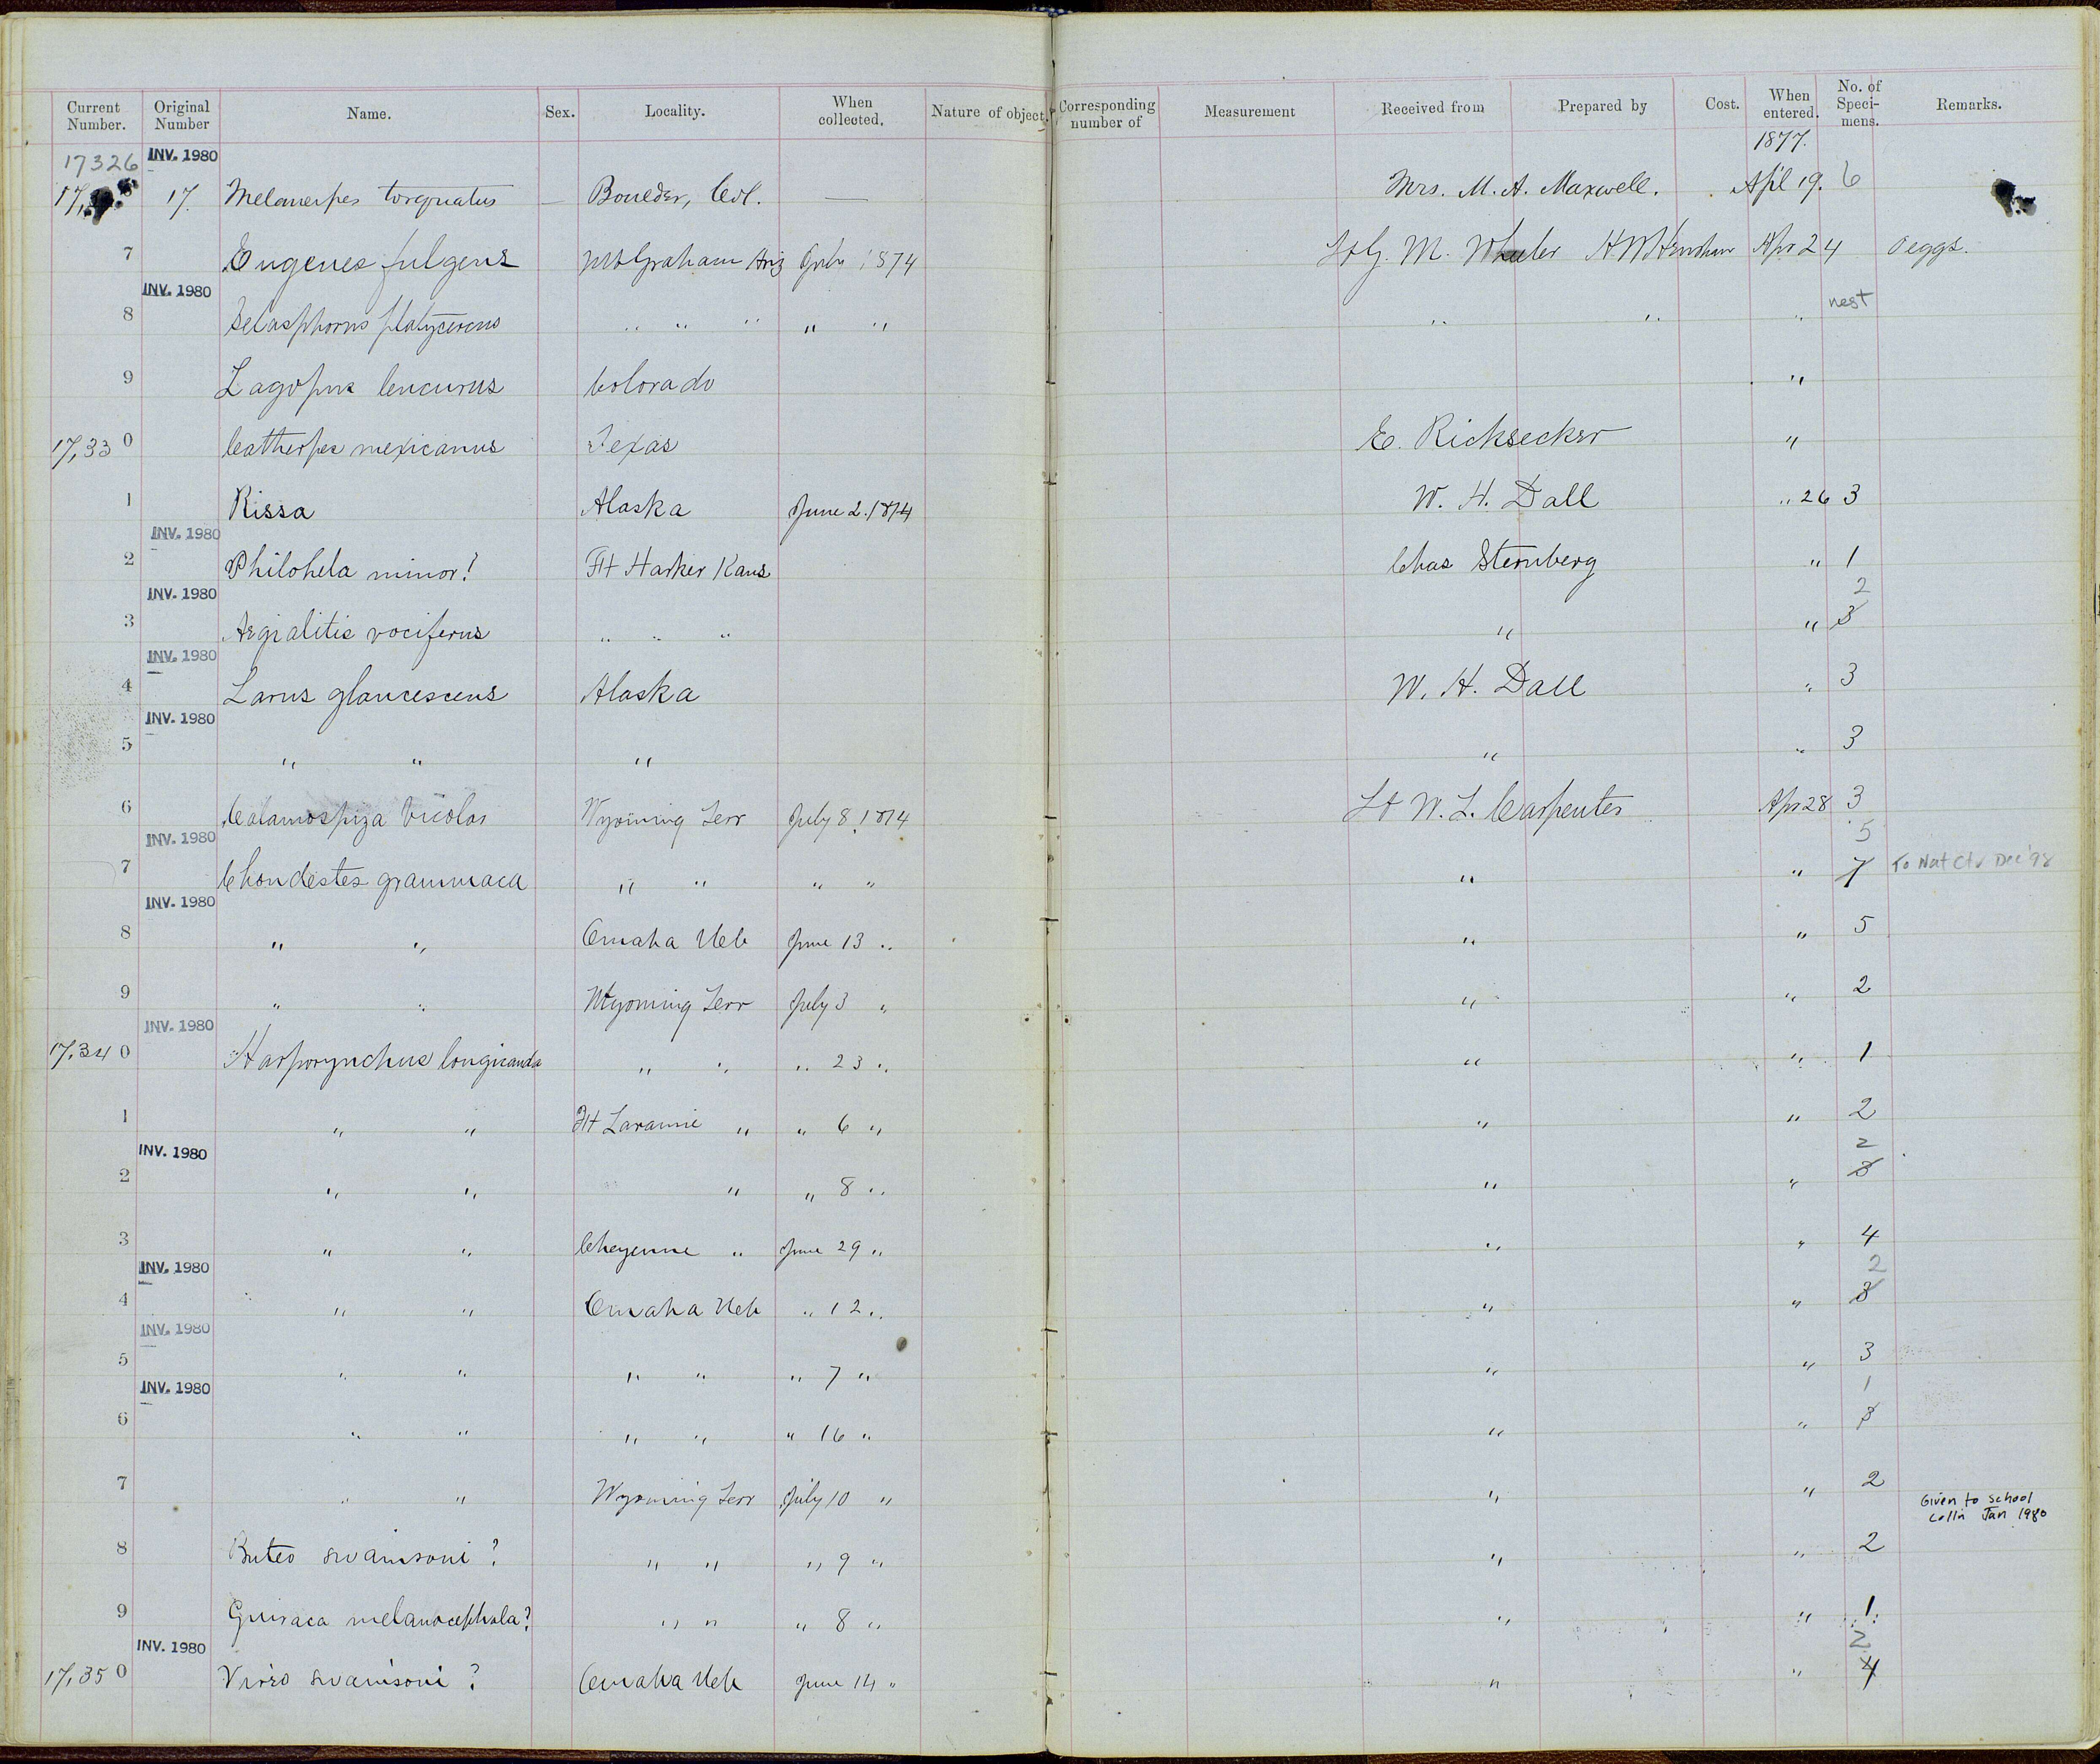 Current Number. Original Number Name. Sex. Locality. When collected. Nature of object. Corresponding number of Measurement Received from Prepared by Cost. When entered. No. of Specimens. Remarks.
1877.
17326 INV. 1980
17, 17. Melanerpes torquatus — Boulder, Col. — Mrs. M. A. Maxwell. Apl 19. 6
7 Eugenes fulgens Mt Graham Ariz July 1874 Lt G. M. Wheeler H W Henshaw Apr 24 0 eggs.
INV. 1980 nest
8 Selasphorus platycercus " " " " " " " "
9 Lagopus leucurus Colorado "
17,330 Catherpes mexicanus Texas E. Ricksecker "
1 Rissa Alaska June 2. 1874 W. H. Dall " 26 3
INV. 1980
2 Philohela minor? Ft Harker Kans Chas Sternberg " 1
INV. 1980 2
3 Aegialitis vociferus " " " " " 3
INV. 1980
4 Larus glaucescens Alaska W. H. Dall " 3
INV. 1980
5 " " " " " 3
6 Calamospiza bicolor Wyoming Terr July 8 1874 Lt W. L. Carpenter Apr 28 3
INV. 1980 5
7 Chondestes grammaca " " " " " " 7 To Nat Ctr Dec '98
INV. 1980
8 " " Omaha Neb June 13 " " " 5
9 " " Wyoming Terr July 3 " " " 2
INV. 1980
17,340 Harporynchus longicauda " " " 23 " " " 1
1 " " Ft Laramie " " 6 " " " 2
INV. 1980 2
2 " " " " 8 " " " 3
3 " " Cheyenne " June 29 " " " 4
INV. 1980 2
4 " " Omaha Neb " 12 " " " 3
INV. 1980
5 " " " " " 7 " " " 3
INV. 1980 1
6 " " " " " 16 " " " 3
7 " " Wyoming Terr July 10 " " " 2
Given to school
Colln Jan 1980
8 Buteo swainsoni? " " " 9 " " " 2
9 Guiraca melanocephala? " " " 8 " " " 1
INV. 1980 2
17,350 Vireo swainsoni? Omaha Neb June 14 " " " 4